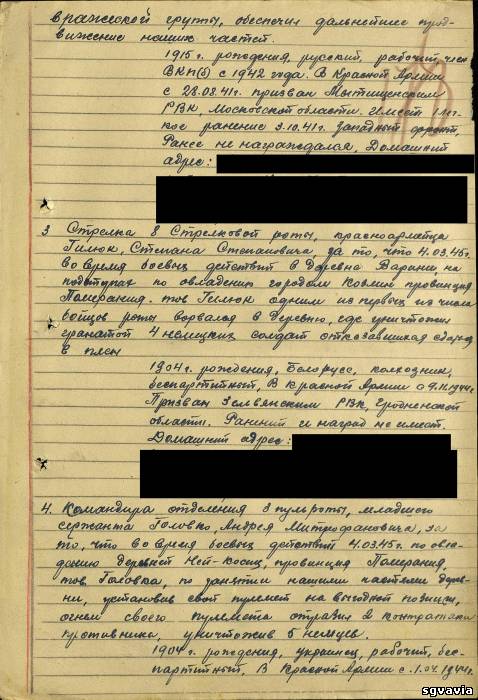 вражеской группы, обеспечив дальнейшее прод-
вижение наших частей.
1915 г. рождения, русский, рабочий, член
ВКП(б) с 1942 года. В Красной Армии
с 28.08.41г. призван Мытищенским
РВК, Московской области. Имеет 1 лег-
кое ранение 3.10.41г. Западный фронт,
Ранее не награждался, Домашний
адрес:
3 Стрелка 8 Стрелковой роты, красноармейца
Гилюк, Степана Степановича за то, что 4.03.45г.
во время боевых действий в деревне Варанин на
подступах по овладению городом Кезлин провинция
Померания. тов Гилюк одним из первых из числа
бойцов роты ворвался в деревню, где уничтожил
гранатой 4 немецких солдат отказавшихся сдаться
в плен
1904 г. рождения, Белорусс, колхозник,
беспартийный, В Красной Армии с 9.11.1944г.
Призван Зельвянским РВК, Гродненской
области. Ранений и наград не имеет.
Домашний адрес:
4. Командира отделения 3 пульроты, младшего
сержанта Головко, Андрея Митрофановича, за
то, что во время боевых действий 4.03.45г. по овла-
дению деревней Ней-Козиц, провинция Померания,
тов Головка, по занятии нашими частями дерев-
ни, установив свой пулемет на выгодной позиции,
огнем своего пулемета отразил 2 контратаки
противника, уничтожив 5 немцев.
1904 г. рождения, украинец, рабочий, бес-
партийный, В Красной Армии с 1.04.1944г.
sgvavia